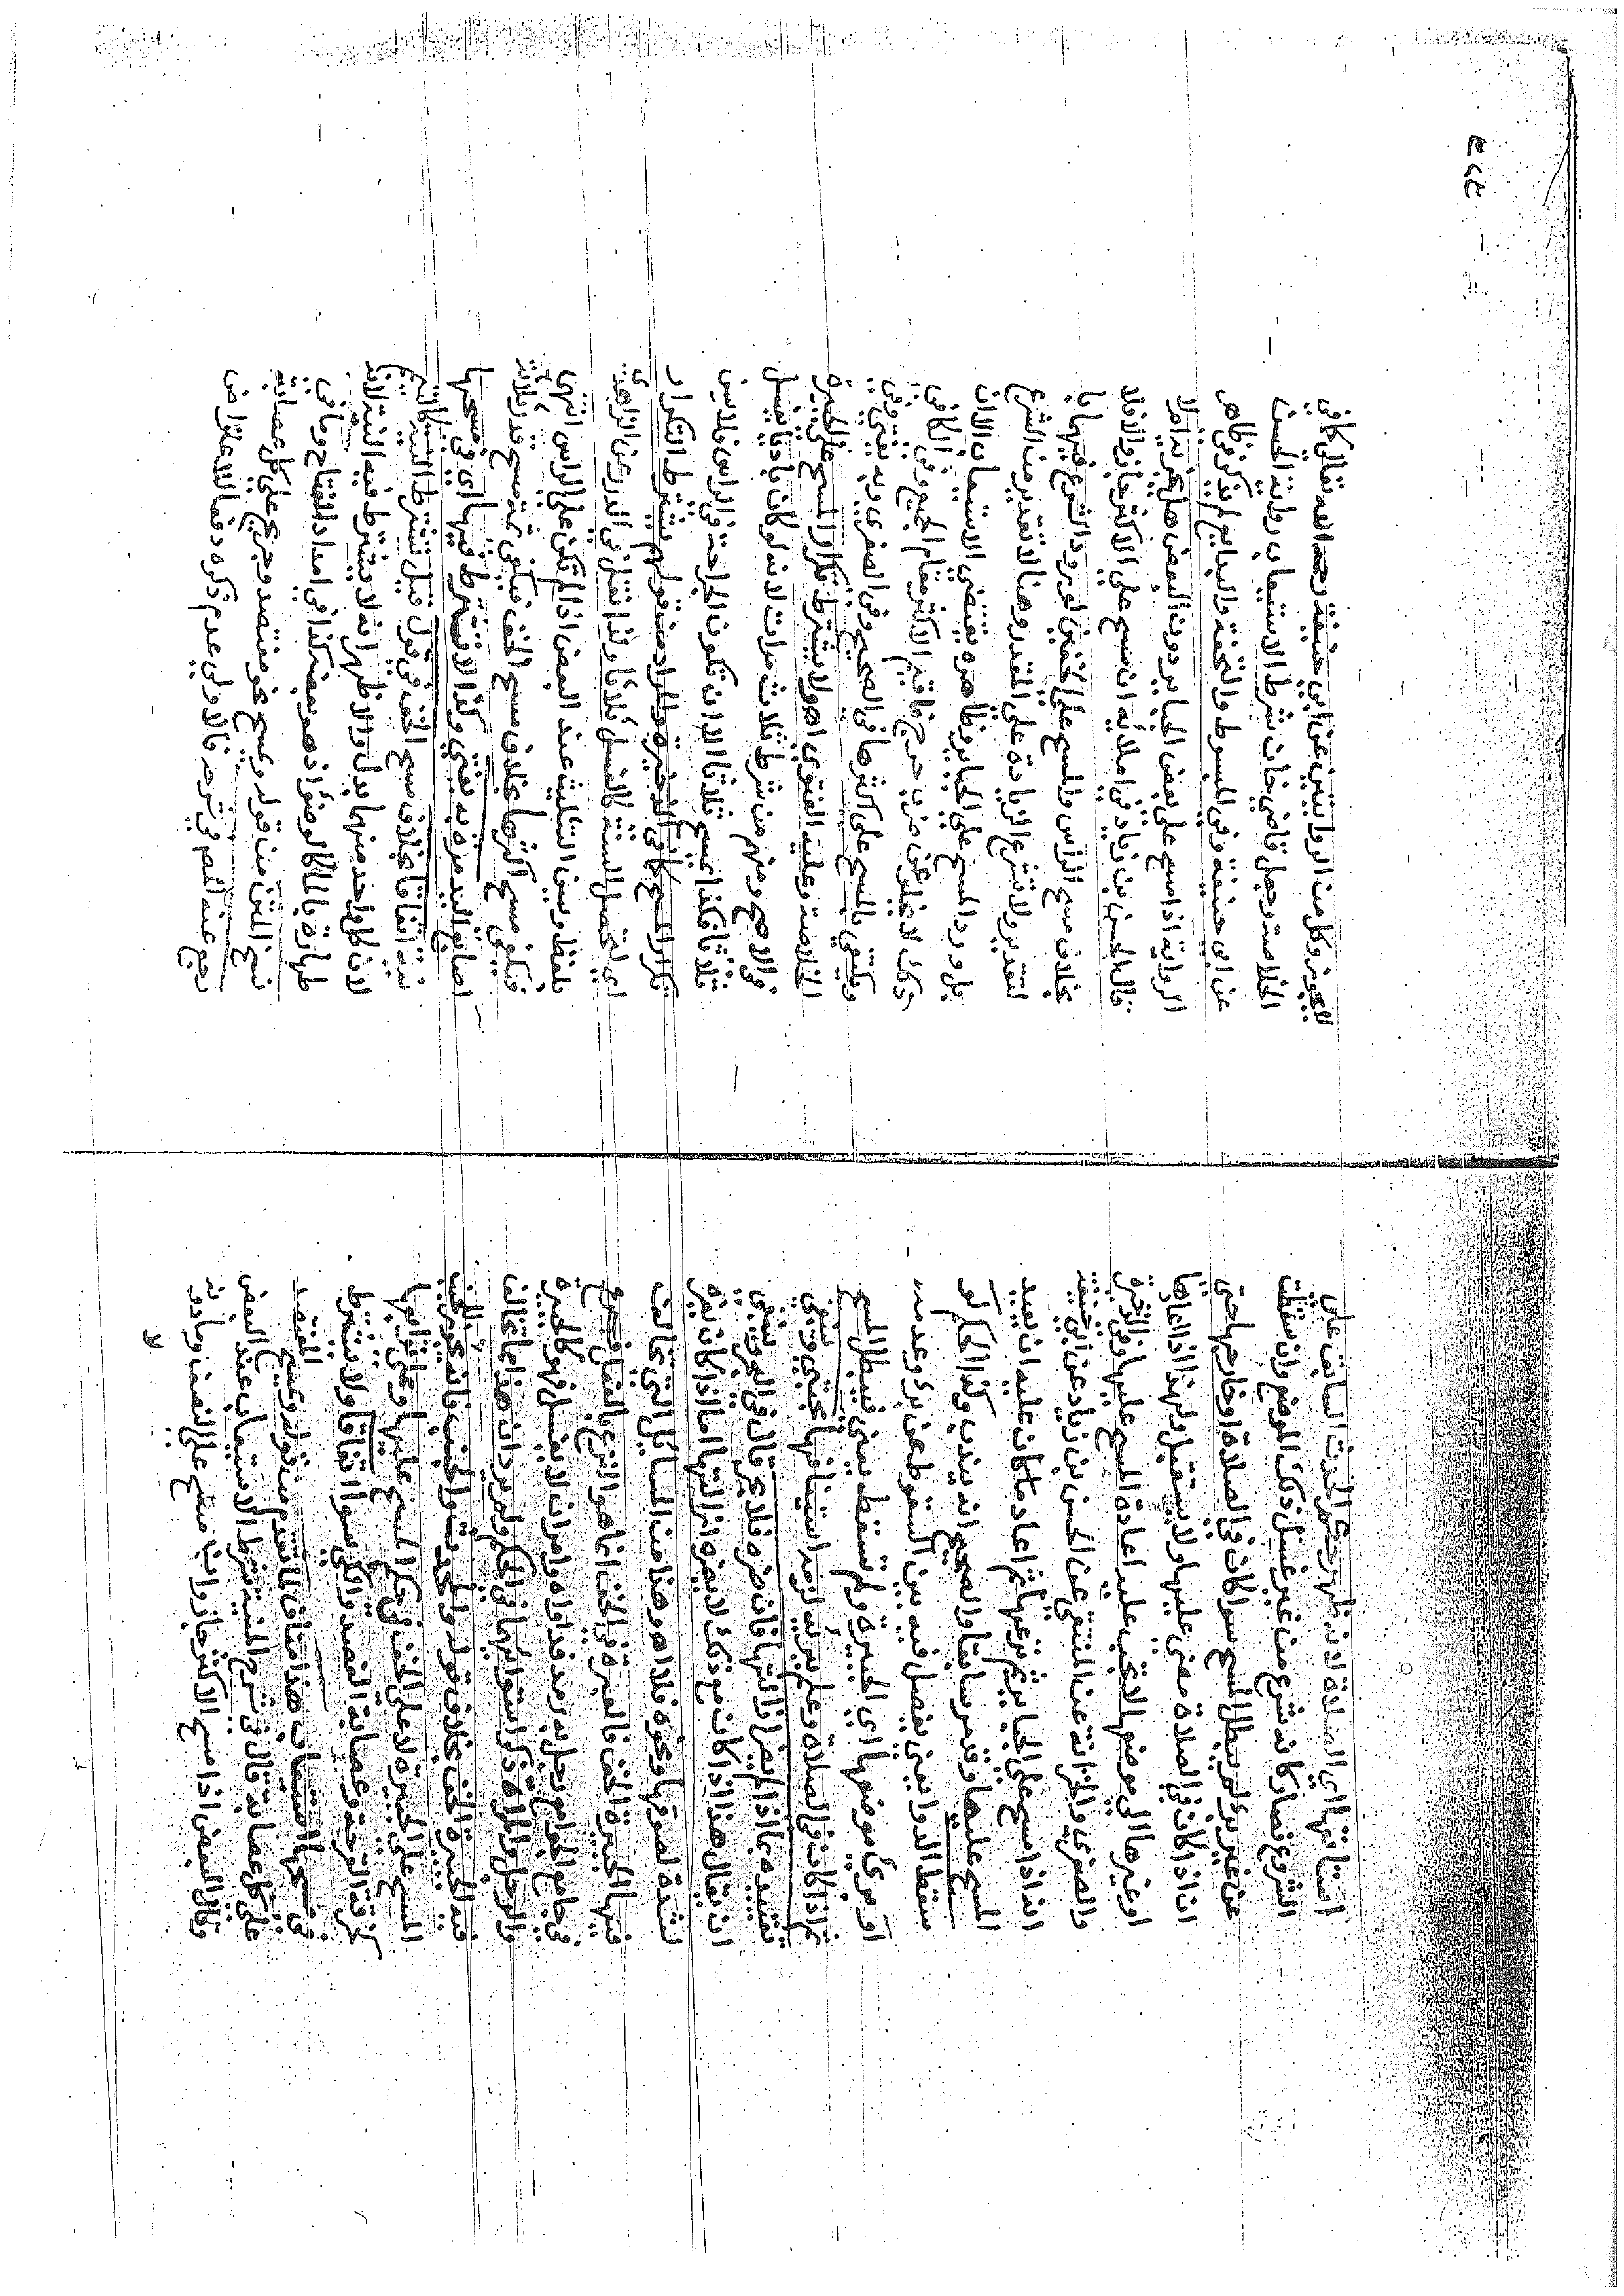 استأنفها اي الصلاة لانه ظهر حكم الحدث السابق على
الشروع فصار كانه شرع من غير غسل ذلك الموضع وان سقطت
عن غير برء لم يبطل المسح سوا كان في الصلاة او خارجها حتى
انه اذا كان في الصلاة مضى عليها ولا يستقبل ولهذا اذا اعادها
او غيرها الى موضعها لا تجب عليه اعادة المسح عليها وفي الذخيرة
والصغرى والخزانة عن المنتقى عن الحسن بن زياد عن ابي حنيفة
انه اذا مسح على الجباير ثم نزعها ثم اعادها كان عليه ان يعيد
المسح عليها وقد مر سابقا والصحيح انه يندب وكذا الحكم لو
سقط الدوا يعني يفصل فيه بين السقوط عن برء وعدمه
او برئ موضعها اي الجبيرة ولم تسقط يعني فيبطل المسح
ثم اذا كان في الصلاة وعلم برئه لزمه استينافها مجتبى وينبغي
تقييده بما اذا لم يضر ازالتها فان ضره فلا بحر قال في البحر وينبغي
ان يقال هذا اذا كان مع ذلك لا يضره ازالتها اما اذا كان يضره
لشدة لصوقها ونحوه فلا اه وهذا من المسائل التي خالف
فيها الجبيرة الخف فالعبرة في الخف انما هو النزع بالفعل
في جامع الجوامع رجل به رمد فداواه وامر ان لا يغسل فهو كالجبيرة
والرجل والمرأة ذكر استوايهما في الحكم ولم يرد ان هذا مما يخالف
فيه الجبيرة الخف بخلاف قوله والمحدث والجنب فانه يجوز للجنب
المسح على الجبيرة لا على الخف في حكم المسح عليها وعلى توابعها
كخرقة القرحة وعصابة الفصد والكي سوا اتفاقا ولا يشترط
في مسحها استيعاب هذا مناف لما تقدم من قوله ويمسح المفتصد
على كل عصابة قال في شرح المنية شرط الاستيعاب عند البعض
وقال البعض اذا مسح الاكثر جاز وان مسح على النصف وما دونه
لا
لا يجوز وكل من الروايتين عن ابي حنيفة رحمه الله تعالى كما في
الخلاصة وجعل قاضي خان شرط الاستيعاب رواية الحسن
عن ابي حنيفة وفي المبسوط والتحفة والبدايع لم يذكر في ظاهر
الرواية اذا مسح على بعض الجباير دون البعض هل يجزيه ام لا
قال الحسن بن زياد في املائه ان مسح على الاكثر جاز والا فلا
بخلاف مسح الراس والمسح على الخفين لورود الشرع فيهما با
لتقدير ولا تشرع الزيادة على المقدر وهنا لا تقدير من الشرع
بل ورد المسح على الجباير وظاهره يقتضي الاستيعاب الا ان
ذلك لا يخلو عن ضرب حرج فاقيم الاكثر مقام الجميع وفي الكافي
ويكتفي بالمسح على اكثرها في الصحيح وفي الصغرى وبه يفتى وفي
الخلاصة وعليه الفتوى اه ولا يشترط تكرار المسح على الجبيرة
في الاصح ومنهم من شرط ثلاث مرات لانه لو كان باديا يغسل
ثلاثا فكذا يمسح ثلاثا الا ان تكون الجراحة في الراس فلا يسن
تكرار المسح كما في الذخيرة والمراد من قولهم يشترط التكرار
اي لتحصل السنة كالغسل ثلاثا ولذا نقل في الدرر عن الزاهدي
بلفظ ويسن التثليث عند البعض اذا لم تكن على الراس انتهى
فيكفي مسح اكثرها بخلاف مسح الخف فيكفي ثمة مسح قدر ثلاثة
اصابع اليد مرة به يفتى وكذا لا يشترط فيها اي في مسحها
نية اتفاقا بخلاف مسح الخف في قول قيل تشترط النية كالتيمم
لان كل واحد منهما بدل والاظهر انه لا يشترط فيه النية لانه
طهارة بالماء كالوضوء اذ هو بعضه كذا في امداد الفتاح وما في
نسخ المتن من قوله ويمسح نحو مفتصد وجريح على كل عصابة
رجع عنه المص في شرحه فالاولى عدم ذكره دفعا للاعتراض